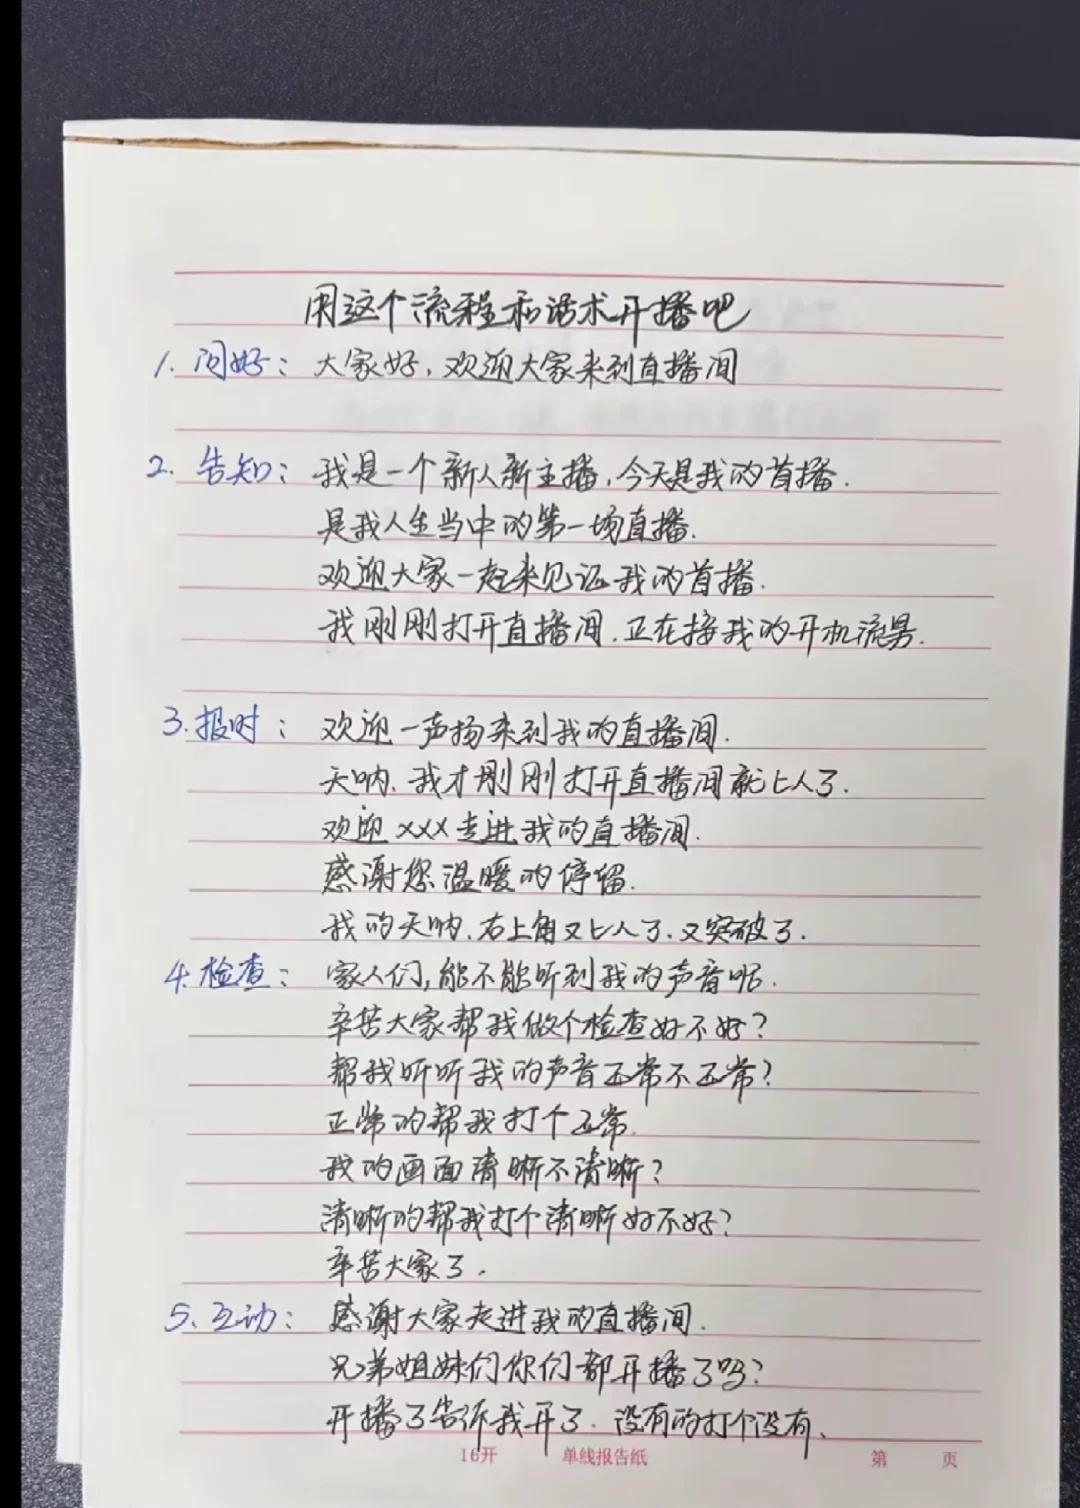 用这个流程和话术开播吧
1. 问好：大家好，欢迎大家来到直播间
2. 告知：我是一个新人新主播，今天是我的首播.
是我人生当中的第一场直播.
欢迎大家一起来见证我的首播.
我刚刚打开直播间.正在接我的开机流量.
3.报时：欢迎一声扬来到我的直播间.
天呐、我才刚刚打开直播间就上人了.
欢迎xxx走进我的直播间.
感谢您温暖的停留.
我的天呐、右上角又上人了、又突破了.
4.检查：家人们,能不能听到我的声音呢.
辛苦大家帮我做个检查好不好？
帮我听听我的声音正常不正常？
正常的帮我打个正常.
我的画面清晰不清晰？
清晰的帮我打个清晰好不好？
辛苦大家了.
5.互动：感谢大家走进我的直播间.
兄弟姐妹们你们都开播了吗？
开播了告诉我开了.没有的打个没有、
16开 单线报告纸 第 页